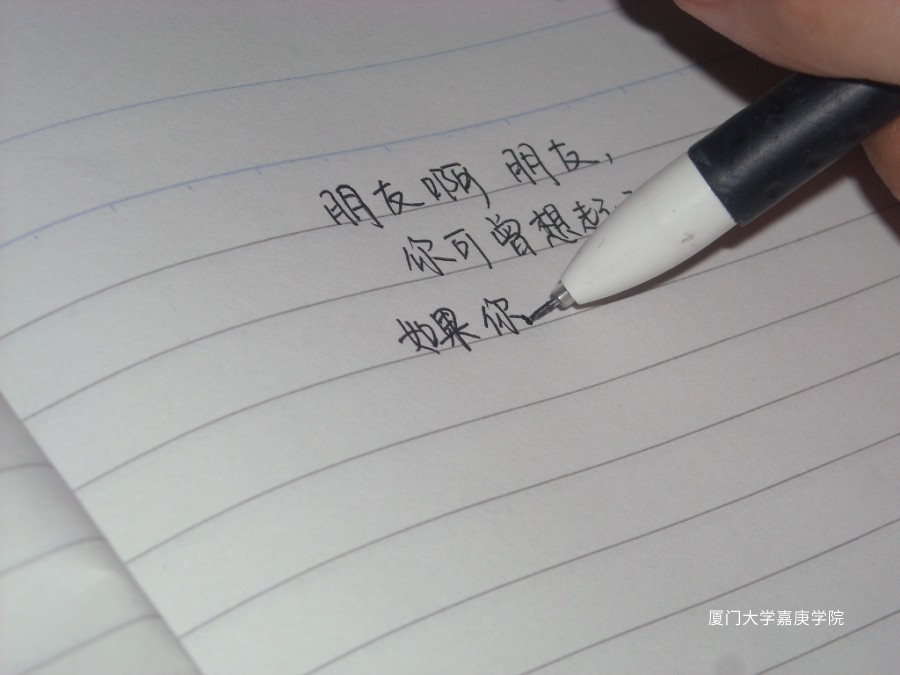 朋友啊朋友，
你可曾想起
如果你
厦门大学嘉庚学院